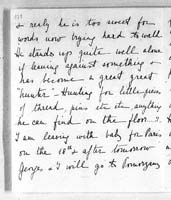 & really he is too sweet for
words now trying hard to walk
He stands up quite well alone
if leaning against something &
has become a great great
"hunter" - Hunting for little pieces
of thread, pins etc etc anything
he can find on the floor.
I am leaving with baby for Paris
on the 10th & after tomorrow
& I will go to